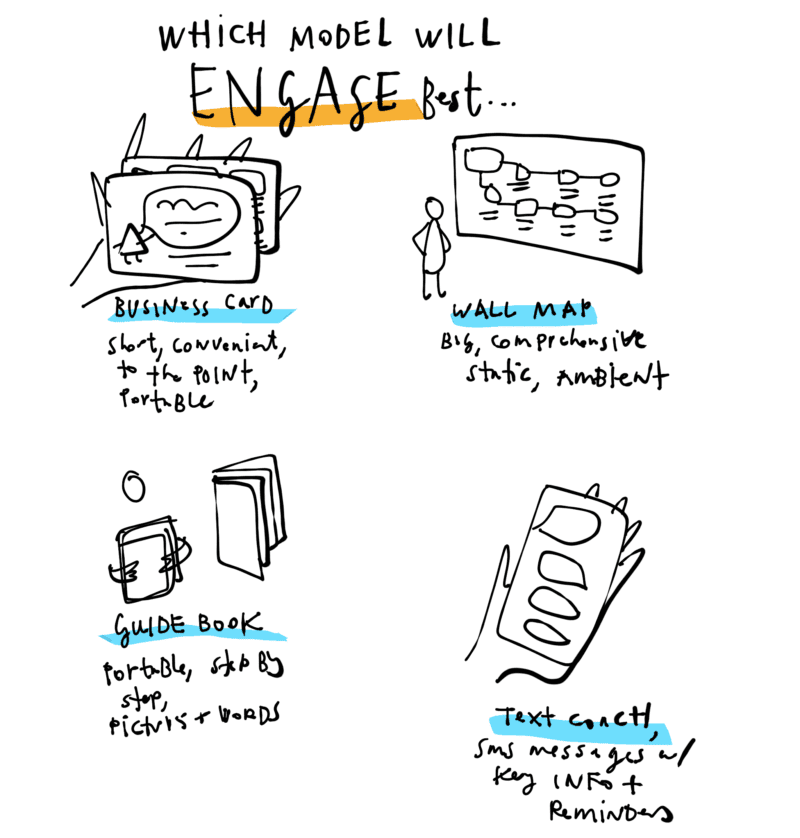 WHICH MODEL WILL
ENGAGE Best...
BUSINESS CARD
short, convenient,
to the POINT,
Portable
WALL MAP
BIG, comprehensive
static, AMBIENT
GUIDE BOOK
Portable, step By
step,
Pictures + WORDS
Text COACH,
SMS messages w/
Key INFO +
Reminders